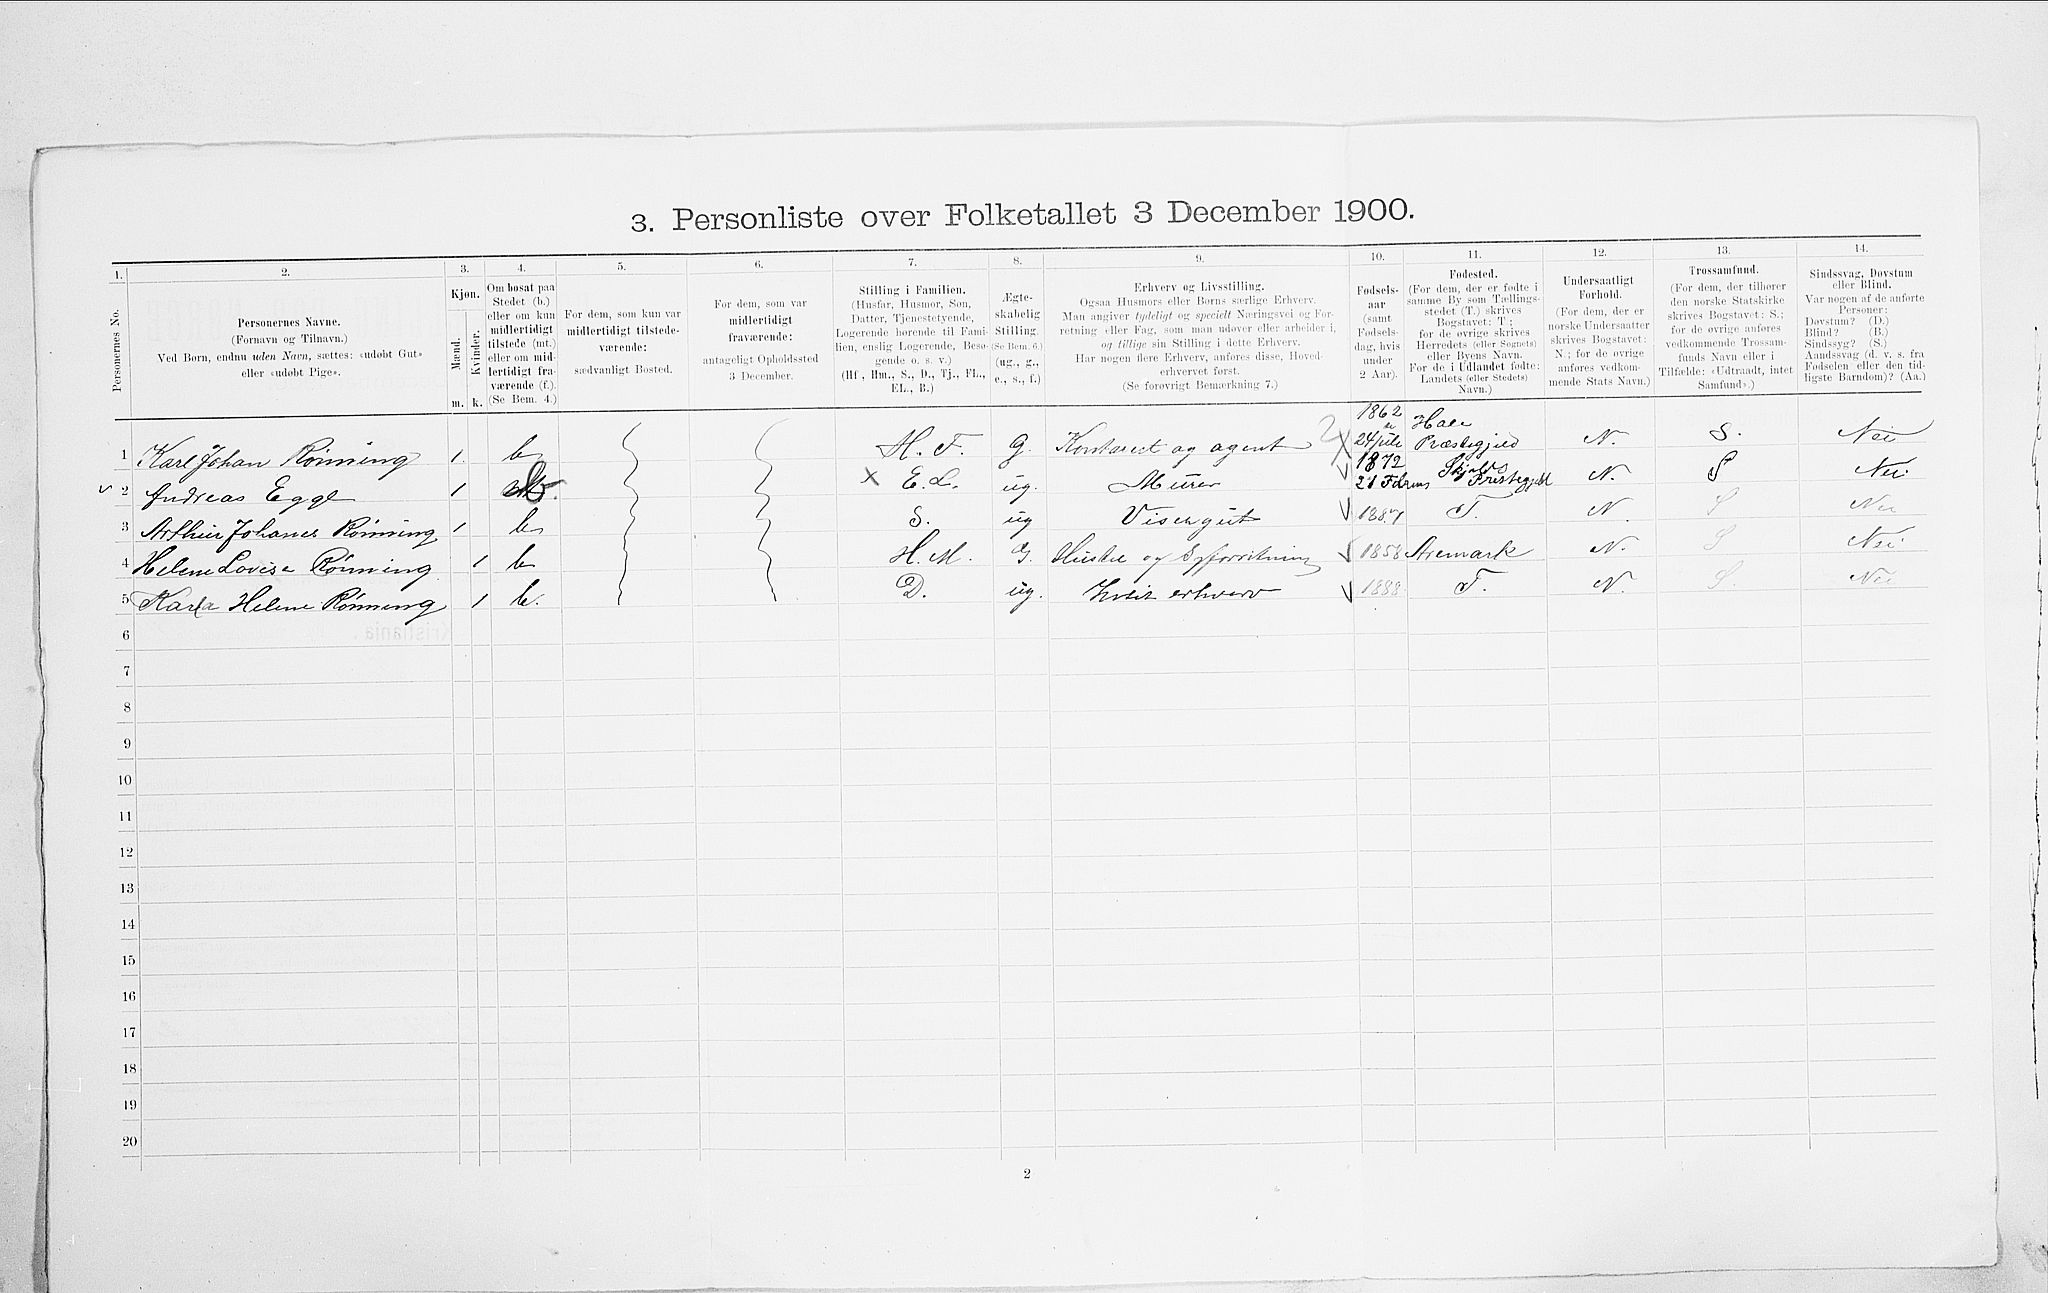 3. Personliste over Folketallet 3 December 1900.
1. 2. 3. 4. 5. 6. 7. 8. 9. 10. 11. 12. 13. 14.
Personernes No.
Personernes Navne.
(Fornavn og Tilnavn.)
Ved Børn, endnu uden Navn, sættes: «udøbt Gut»
eller «udøbt Pige».
Kjøn.
Mænd. Kvinder.
m. k.
Om bosat paa
Stedet (b.)
eller om kun
midlertidigt
tilstede (mt.)
eller om mid-
lertidigt fra-
værende (f.).
(Se Bem. 4.)
For dem, som kun var
midlertidigt tilstede-
værende:
sædvanligt Bosted.
For dem, som var
midlertidigt
fraværende:
antageligt Opholdssted
3 December.
Stilling i Familien.
(Husfar, Husmor, Søn,
Datter, Tjenestetyende,
Logerende hørende til Fami-
lien, enslig Logerende, Besø-
gende o. s. v.)
(Hf., Hm., S., D., Tj., FL.,
EL., B.)
Ægte-
skabelig
Stilling.
(Se Bem. 6.)
(ug., g.,
e., s., f.)
Erhverv og Livsstilling.
Ogsaa Husmors eller Børns særlige Erhverv.
Man angiver tydeligt og specielt Næringsvei og For-
retning eller Fag, som man udøver eller arbeider i,
og tillige sin Stilling i dette Erhverv.
Har nogen flere Erhverv, anføres disse, Hoved-
erhvervet først.
(Se forøvrigt Bemærkning 7.)
Fødsels-
aar
(samt
Fødsels-
dag, hvis
under
2 Aar).
Fødested.
(For dem, der er fødte i
samme By som Tællings-
stedet (T.) skrives
Bogstavet: T.;
for de øvrige skrives
Herredets (eller Sognets)
eller Byens Navn.
For de i Udlandet fødte:
Landets (eller Stedets)
Navn.)
Undersaatligt
Forhold.
(For dem, der er
norske Undersaatter
skrives Bogstavet:
N.; for de øvrige
anføres vedkom-
mende Stats Navn.)
Trossamfund.
(For dem, der tilhører
den norske Statskirke
skrives Bogstavet: S.;
for de øvrige anføres
vedkommende Trossam-
funds Navn eller i
Tilfælde: «Udtraadt, intet
Samfund».)
Sindssvag, Døvstum
eller Blind.
Var nogen af de anførte
Personer:
Døvstum? (D.)
Blind? (B.)
Sindssyg? (S.)
Aandssvag (d. v. s. fra
Fødselen eller den tid-
ligste Barndom)? (Aa.)
1 Karl Johan Rønning 1. b H. F. G. Kontorist og agent 1862 24 juli Præstegjeld N. S. Nei
2 Andreas Egge 1 b. E. L. ug. Murer 1872 21 Prestegjeld N. S Nei
3 Arthur Johanes Rønning 1 b S. ug Visergut 1887 T. N. S Nei
4 Helene Lovise Rønning 1 b H. M. G. 1858 Aremark N. S Nei
5 Karla Helene Rønning 1 b. D. ug. Intet erhverv 1888. T. N. S. Nei
6
7
8
9
10
11
12
13
14
15
16
17
18
19
20
2